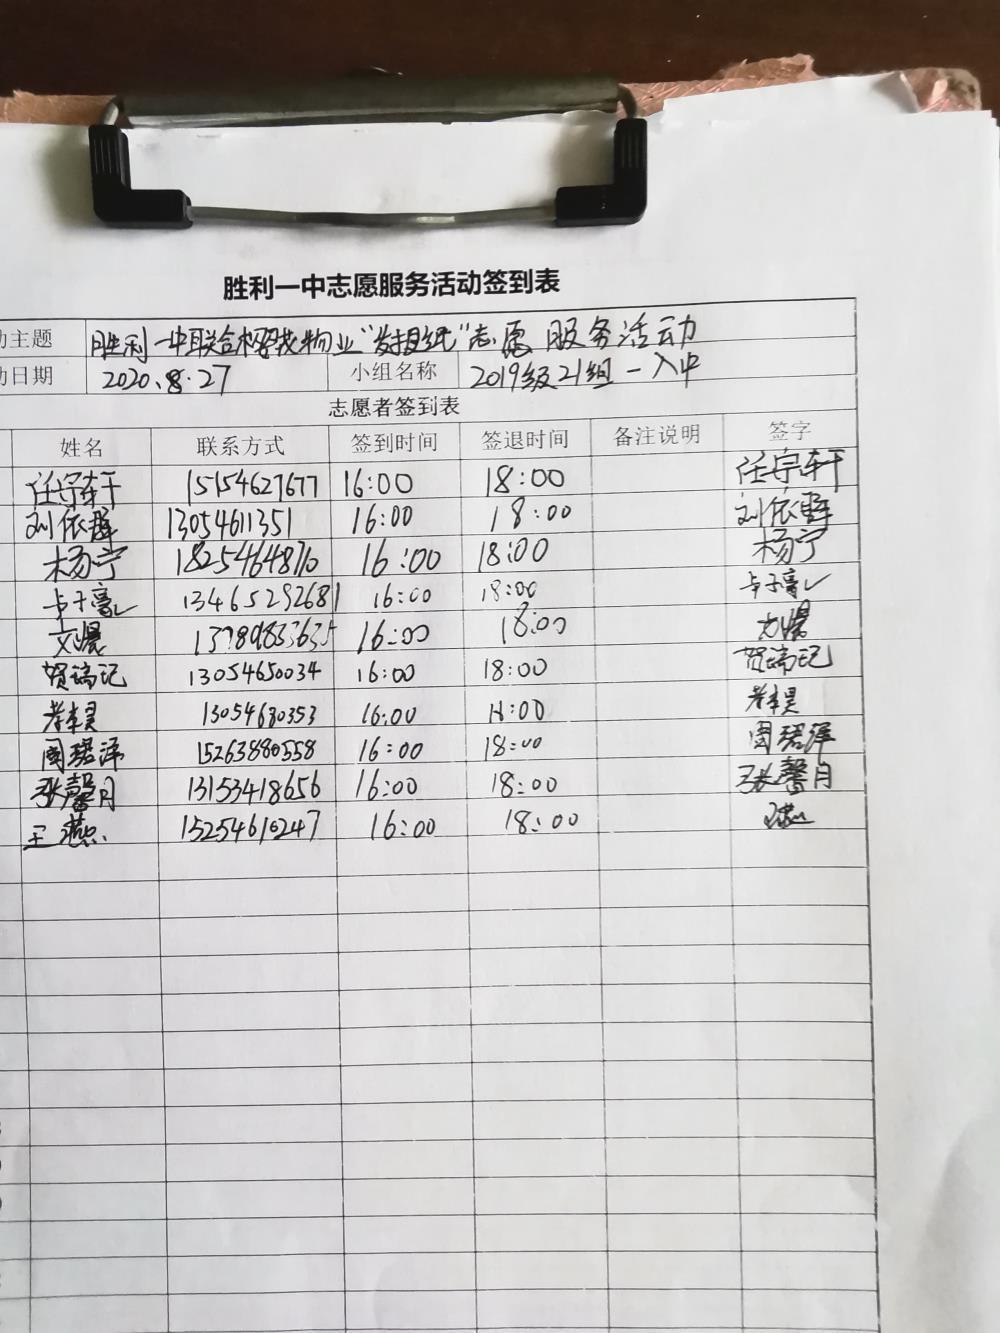 胜利一中志愿服务活动签到表
动主题 胜利一中联合 物业“发报纸”志愿服务活动
动日期 2020.8.27 小组名称 2019级21组一入中
志愿者签到表
姓名 联系方式 签到时间 签退时间 备注说明 签字
任宇轩 15154627677 16:00 18:00 任宇轩
刘依晖 13054611351 16:00 18:00 刘依晖
杨宁 18254648710 16:00 18:00 杨宁
子豪 13465292681 16:00 18:00 子豪
16:00 18:00
贺瑞记 13054650034 16:00 18:00 贺瑞记
13054680353 16:00 18:00
周珺泽 15263880558 16:00 18:00 周珺泽
张馨月 13153418656 16:00 18:00 张馨月
王燕 15254610247 16:00 18:00